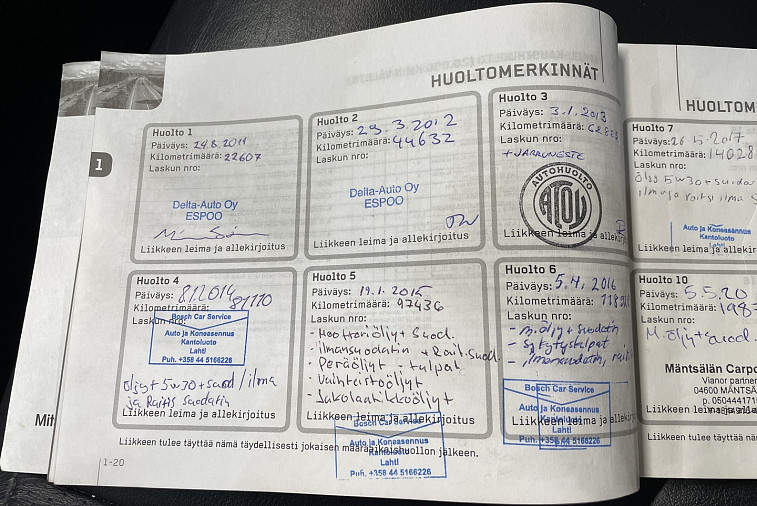 HUOLTOMERKINNÄT
Huolto 1
Päiväys: 24.8.2011
Kilometrimäärä: 22607
Laskun nro:
Delta-Auto Oy
ESPOO
Liikkeen leima ja allekirjoitus
Huolto 2
Päiväys: 29.3.2012
Kilometrimäärä: 44632
Laskun nro:
Delta-Auto Oy
ESPOO
Liikkeen leima ja allekirjoitus
Huolto 3
Päiväys: 3.1.2013
Kilometrimäärä:
Laskun nro:
+JARRUNESTE
AUTOHUOLTO
ATOY
Liikkeen leima ja allekirj
1
Huolto 4
Päiväys: 8.1.2014
Kilometrimäärä: 81110
Laskun nro:
Bosch Car Service
Auto ja Koneasennus
Kantoluoto
Lahti
Puh. +358 44 5166226
öljyt 5w30+suod/ilma
ja Raitis suodatin
Liikkeen leima ja allekirjoitus
Huolto 5
Päiväys: 19.1.2015
Kilometrimäärä: 97436
Laskun nro:
- Moottoriöljy+Suod.
- ilmansuodatin + Rait.suod.
- Peräöljyt - tulpat
- Vaihteistoöljyt
- Jakolaatikkoöljyt
Liikkeen leima ja allekirjoitus
Bosch Car Service
Auto ja Koneasennus
Kantoluoto
Lahti
Puh. +358 44 5166226
Huolto 6
Päiväys: 5.4.2016
Kilometrimäärä:
Laskun nro:
- m.öljy+suodatin
- Sytytystulpat
- ilmansuodatin, rait
Bosch Car Service
Auto ja Koneasennus
Kantoluoto
Lahti
Puh. +358 44 5166226
Liikkeen leima ja alleki
Liikkeen tulee täyttää nämä täydellisesti jokaisen määräaikaishuollon jälkeen.
1-20
Mit
HUOLTOM
Huolto 7
Päiväys: 26.5.2017
Kilometrimäärä: 14028
Laskun nro:
öljy 5w30+suodat
Auto ja Koneasennus
Kantoluoto
Lahti
Liikkeen leima ja
Huolto 10
Päiväys: 5.5.20
Kilometrimäärä: 198
Laskun nro:
M.öljy+suod.
Mäntsälän Carpo
Vianor partner
04600 MÄNTSÄ
p. 050444171
Liikkeen leima
Liikkeen tulee täyttää nä